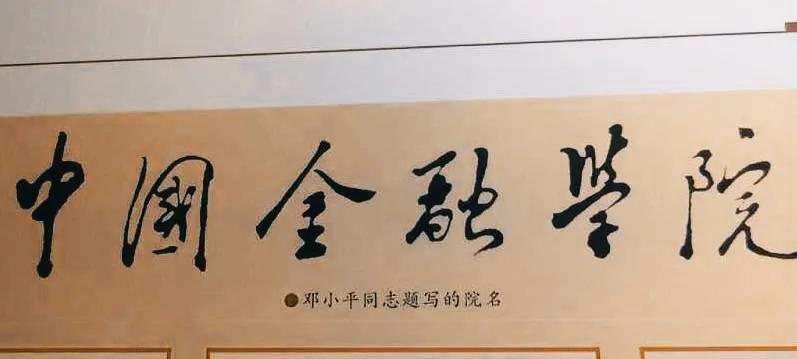 中國金融學院
●邓小平同志题写的院名